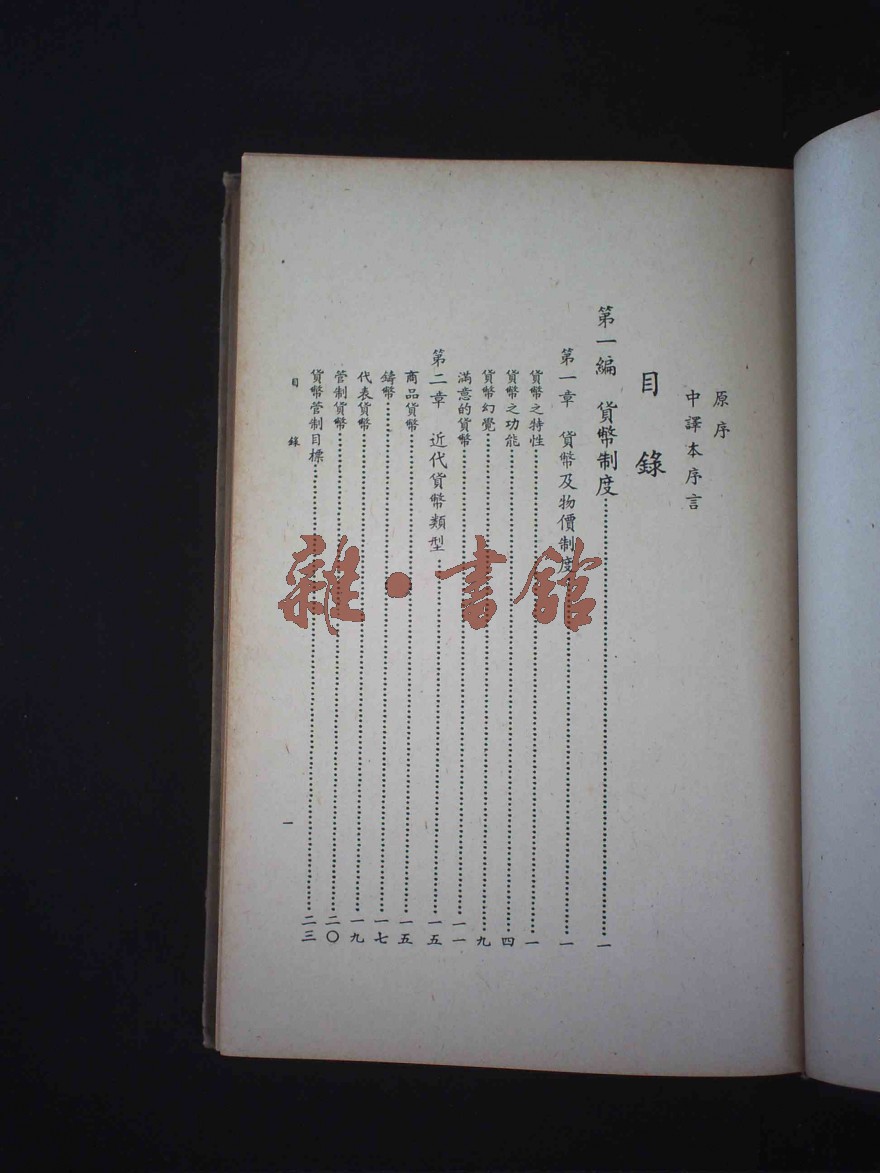 原序
中譯本序言
目錄
第一編　貨幣制度……一
第一章　貨幣及物價制度……一
貨幣之特性……一
貨幣之功能……四
貨幣幻覺……九
滿意的貨幣……一一
第二章　近代貨幣類型……一五
商品貨幣……一五
鑄幣……一七
代表貨幣……一九
管制貨幣……二〇
貨幣管制目標……二三
目錄
一
雜·書館